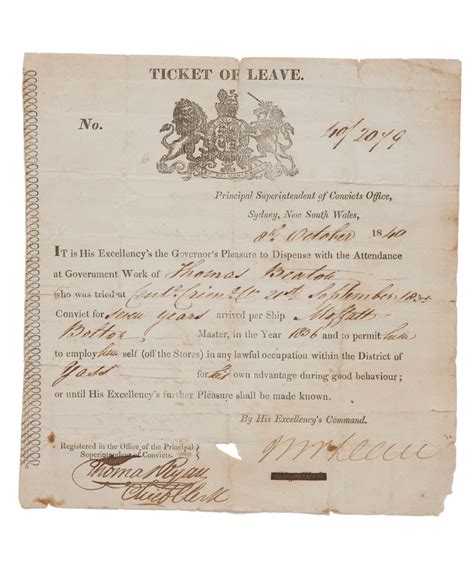 TICKET OF LEAVE.
No. 40/2079
Principal Superintendent of Convicts Office,
Sydney, New South Wales,
October 1840
IT is His Excellency's the Governor's Pleasure to Dispense with the Attendance
at Government Work of Thomas Beaton
who was tried at Cent. Crim. Ct. 21st September 1835
Convict for Seven years arrived per Ship Moffatt
Bolton Master, in the Year 1836 and to permit him
to employ himself (off the Stores) in any lawful occupation within the District of
Yass for his own advantage during good behaviour;
or until His Excellency's further Pleasure shall be made known.
By His Excellency's Command.
Registered in the Office of the Principal
Superintendent of Convicts.
Thomas Ryan
Chief Clerk